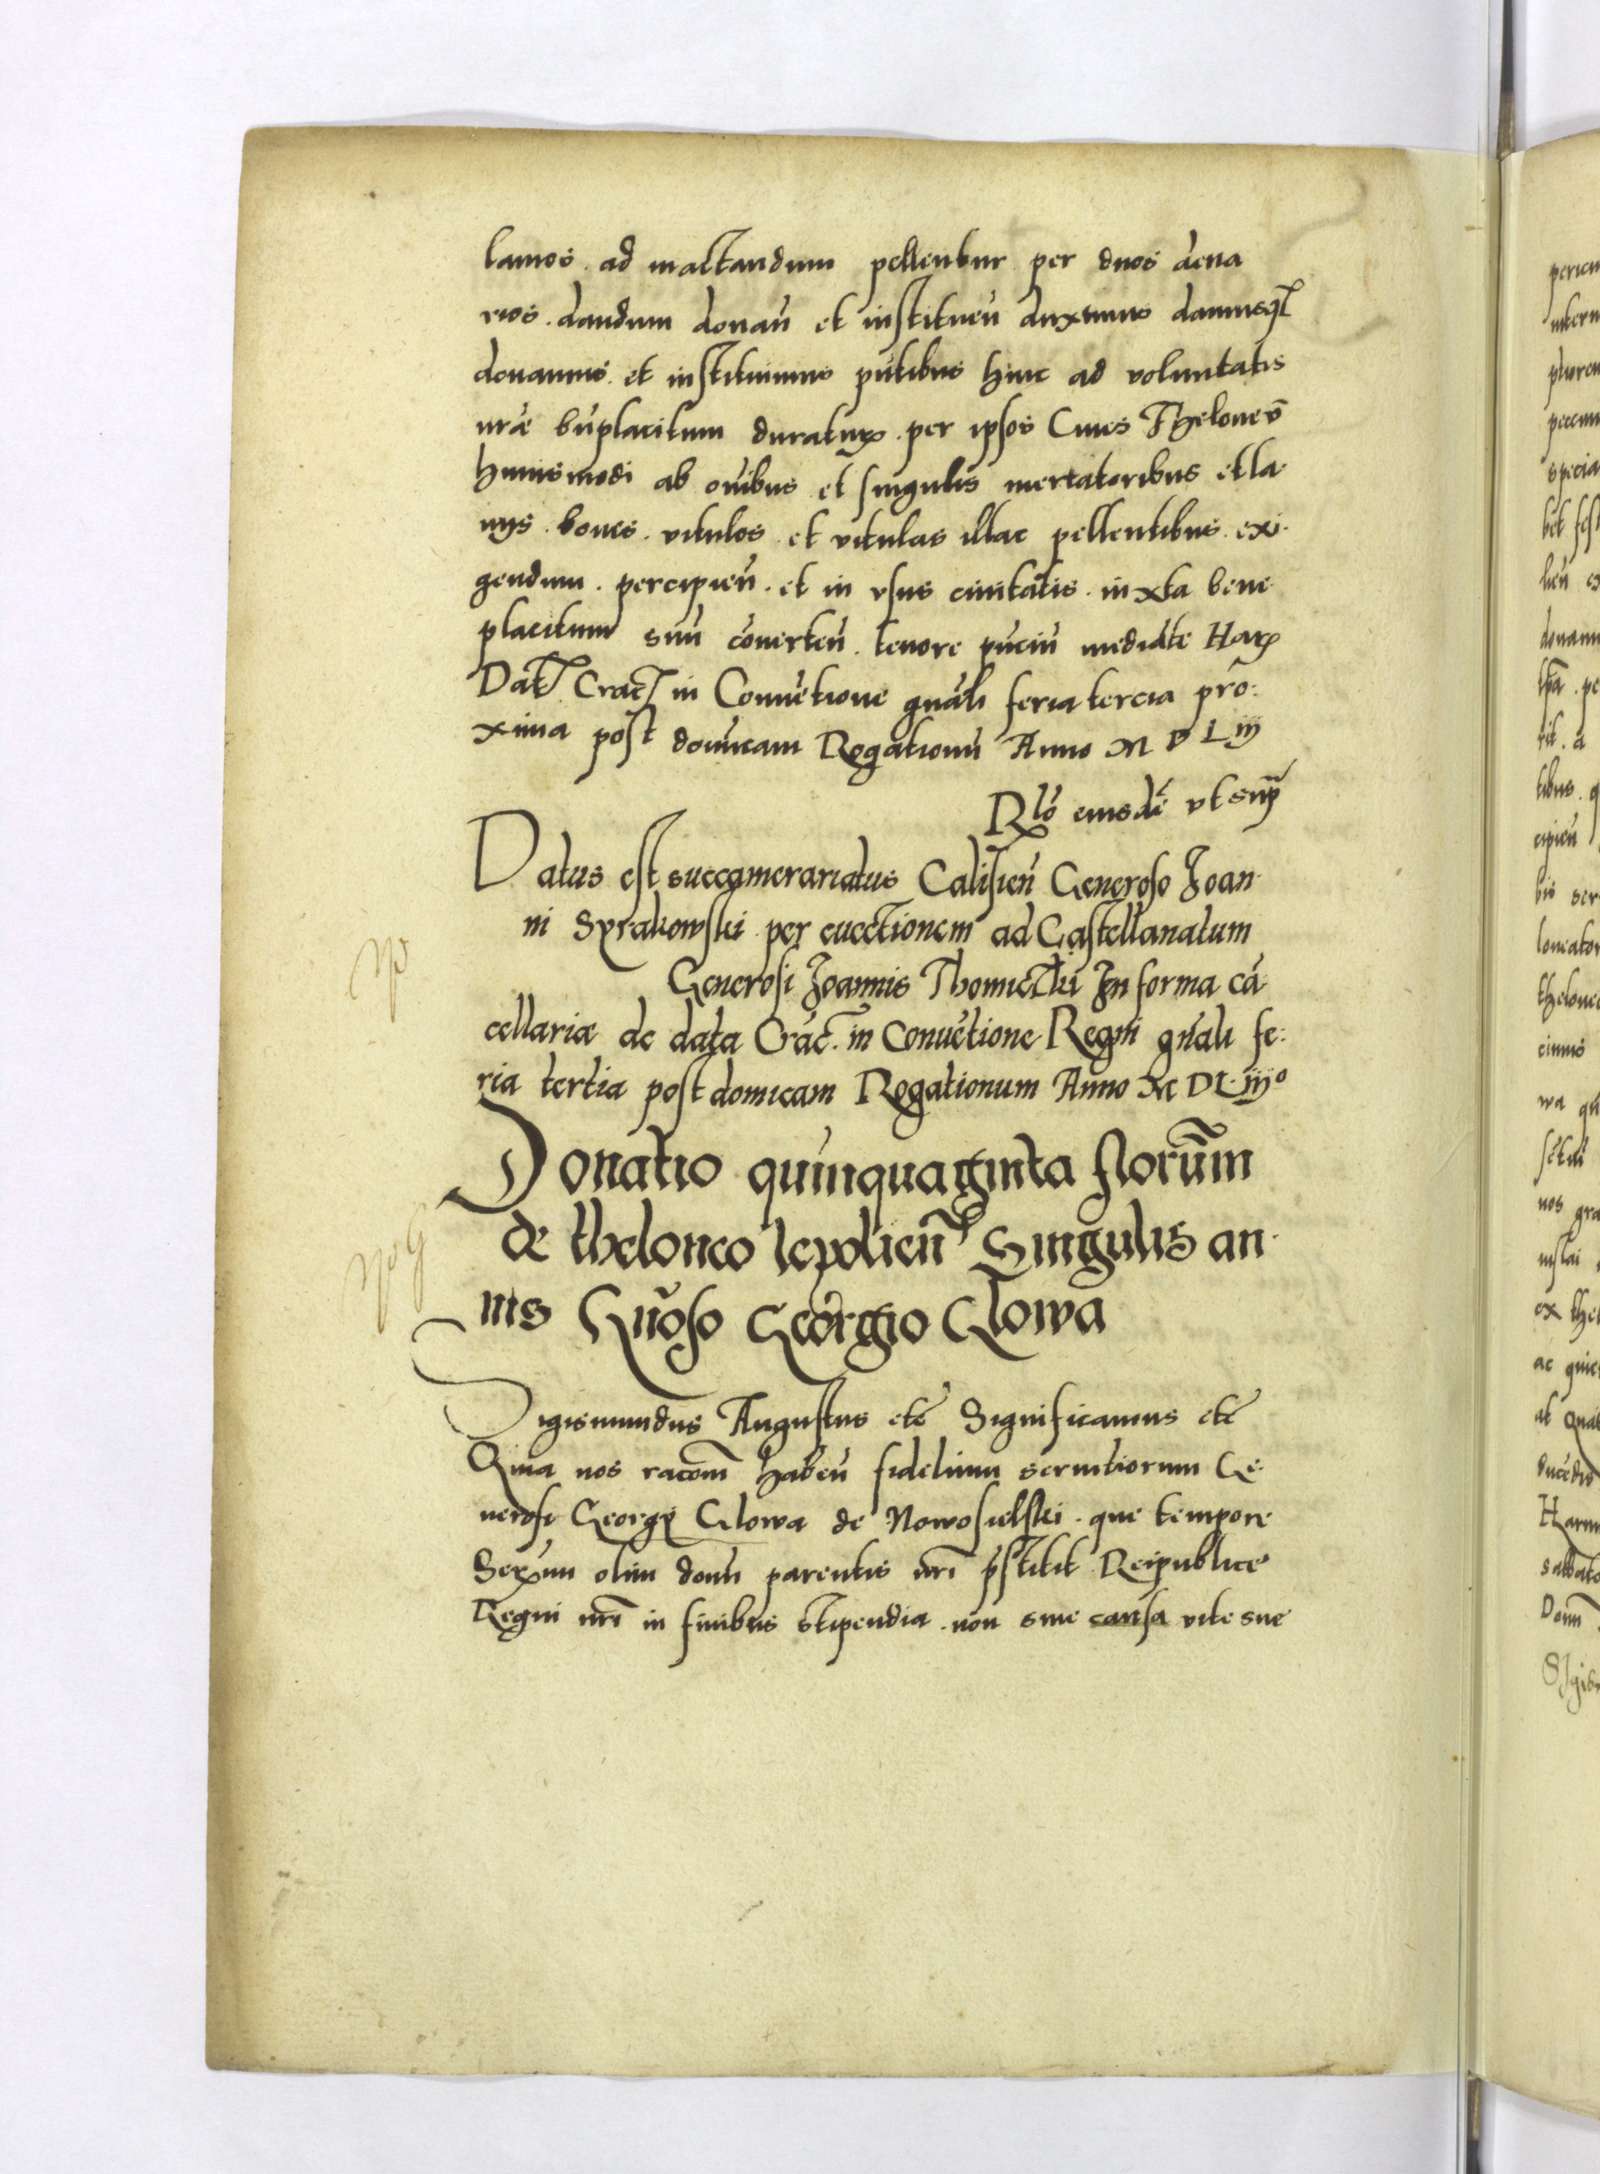 lamos . ad mactandum pellentur per duos dena
rios . dandum donañ et instituen̄ duximus damusq3
donamus . et instituimus pñtibus hinc ad voluntatis
nr̃æ bñplacitum duraturꝝ . per ipsos Ciues Theloneū
huiusmodi ab oñibus et singulis mercatoribus et la
nijs . boues . vitulos . et vitulas illac pellentibus . exi-
gendum . percipien̄ . et in vsus ciuitatis . iuxta bene
placitum suū cōuerten̄ . tenore pñciū mediāte Harꝝ
Dat̃ Crac̃ in Conuētione gnāli feria tercia pro-
xima post domīcam Rogationū Anno M D L iij
Rl̃o eiusdē vt sup̃
Datus est succamerariatus Calisien̄ Generoso Joan
ni Syrakowski . per euectionem ad Castellanatum
Generosi Joannis Thomiczki In forma cā
cellariæ de data Crac̃ . in Conuētione Regni gnāli fe-
ria tertia post domīcam Rogationum Anno M D L iijº
Donatio quinquaginta florūm
de theloneo leopolien̄ Singulis an-
nis Gn̄oso Georgio Glowa
Sigismundus Augustus etc̃ Significamus etc̃
Quia nos racom̃ haben̄ fidelium seruitiorum Ge-
nerosi Georgij Glowa de Nowosielski . que tempore
Serx̃mi olim domī parentis nr̃i p̃stitit Reipublice
Regni nr̃i in finibus stipendia . non sine causa vite sue